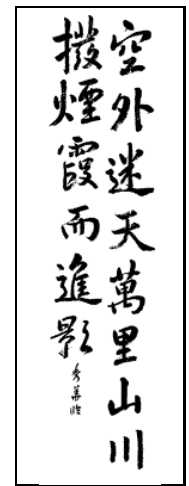 空外迷天萬里山川
撥煙霞而進影
秀華臨